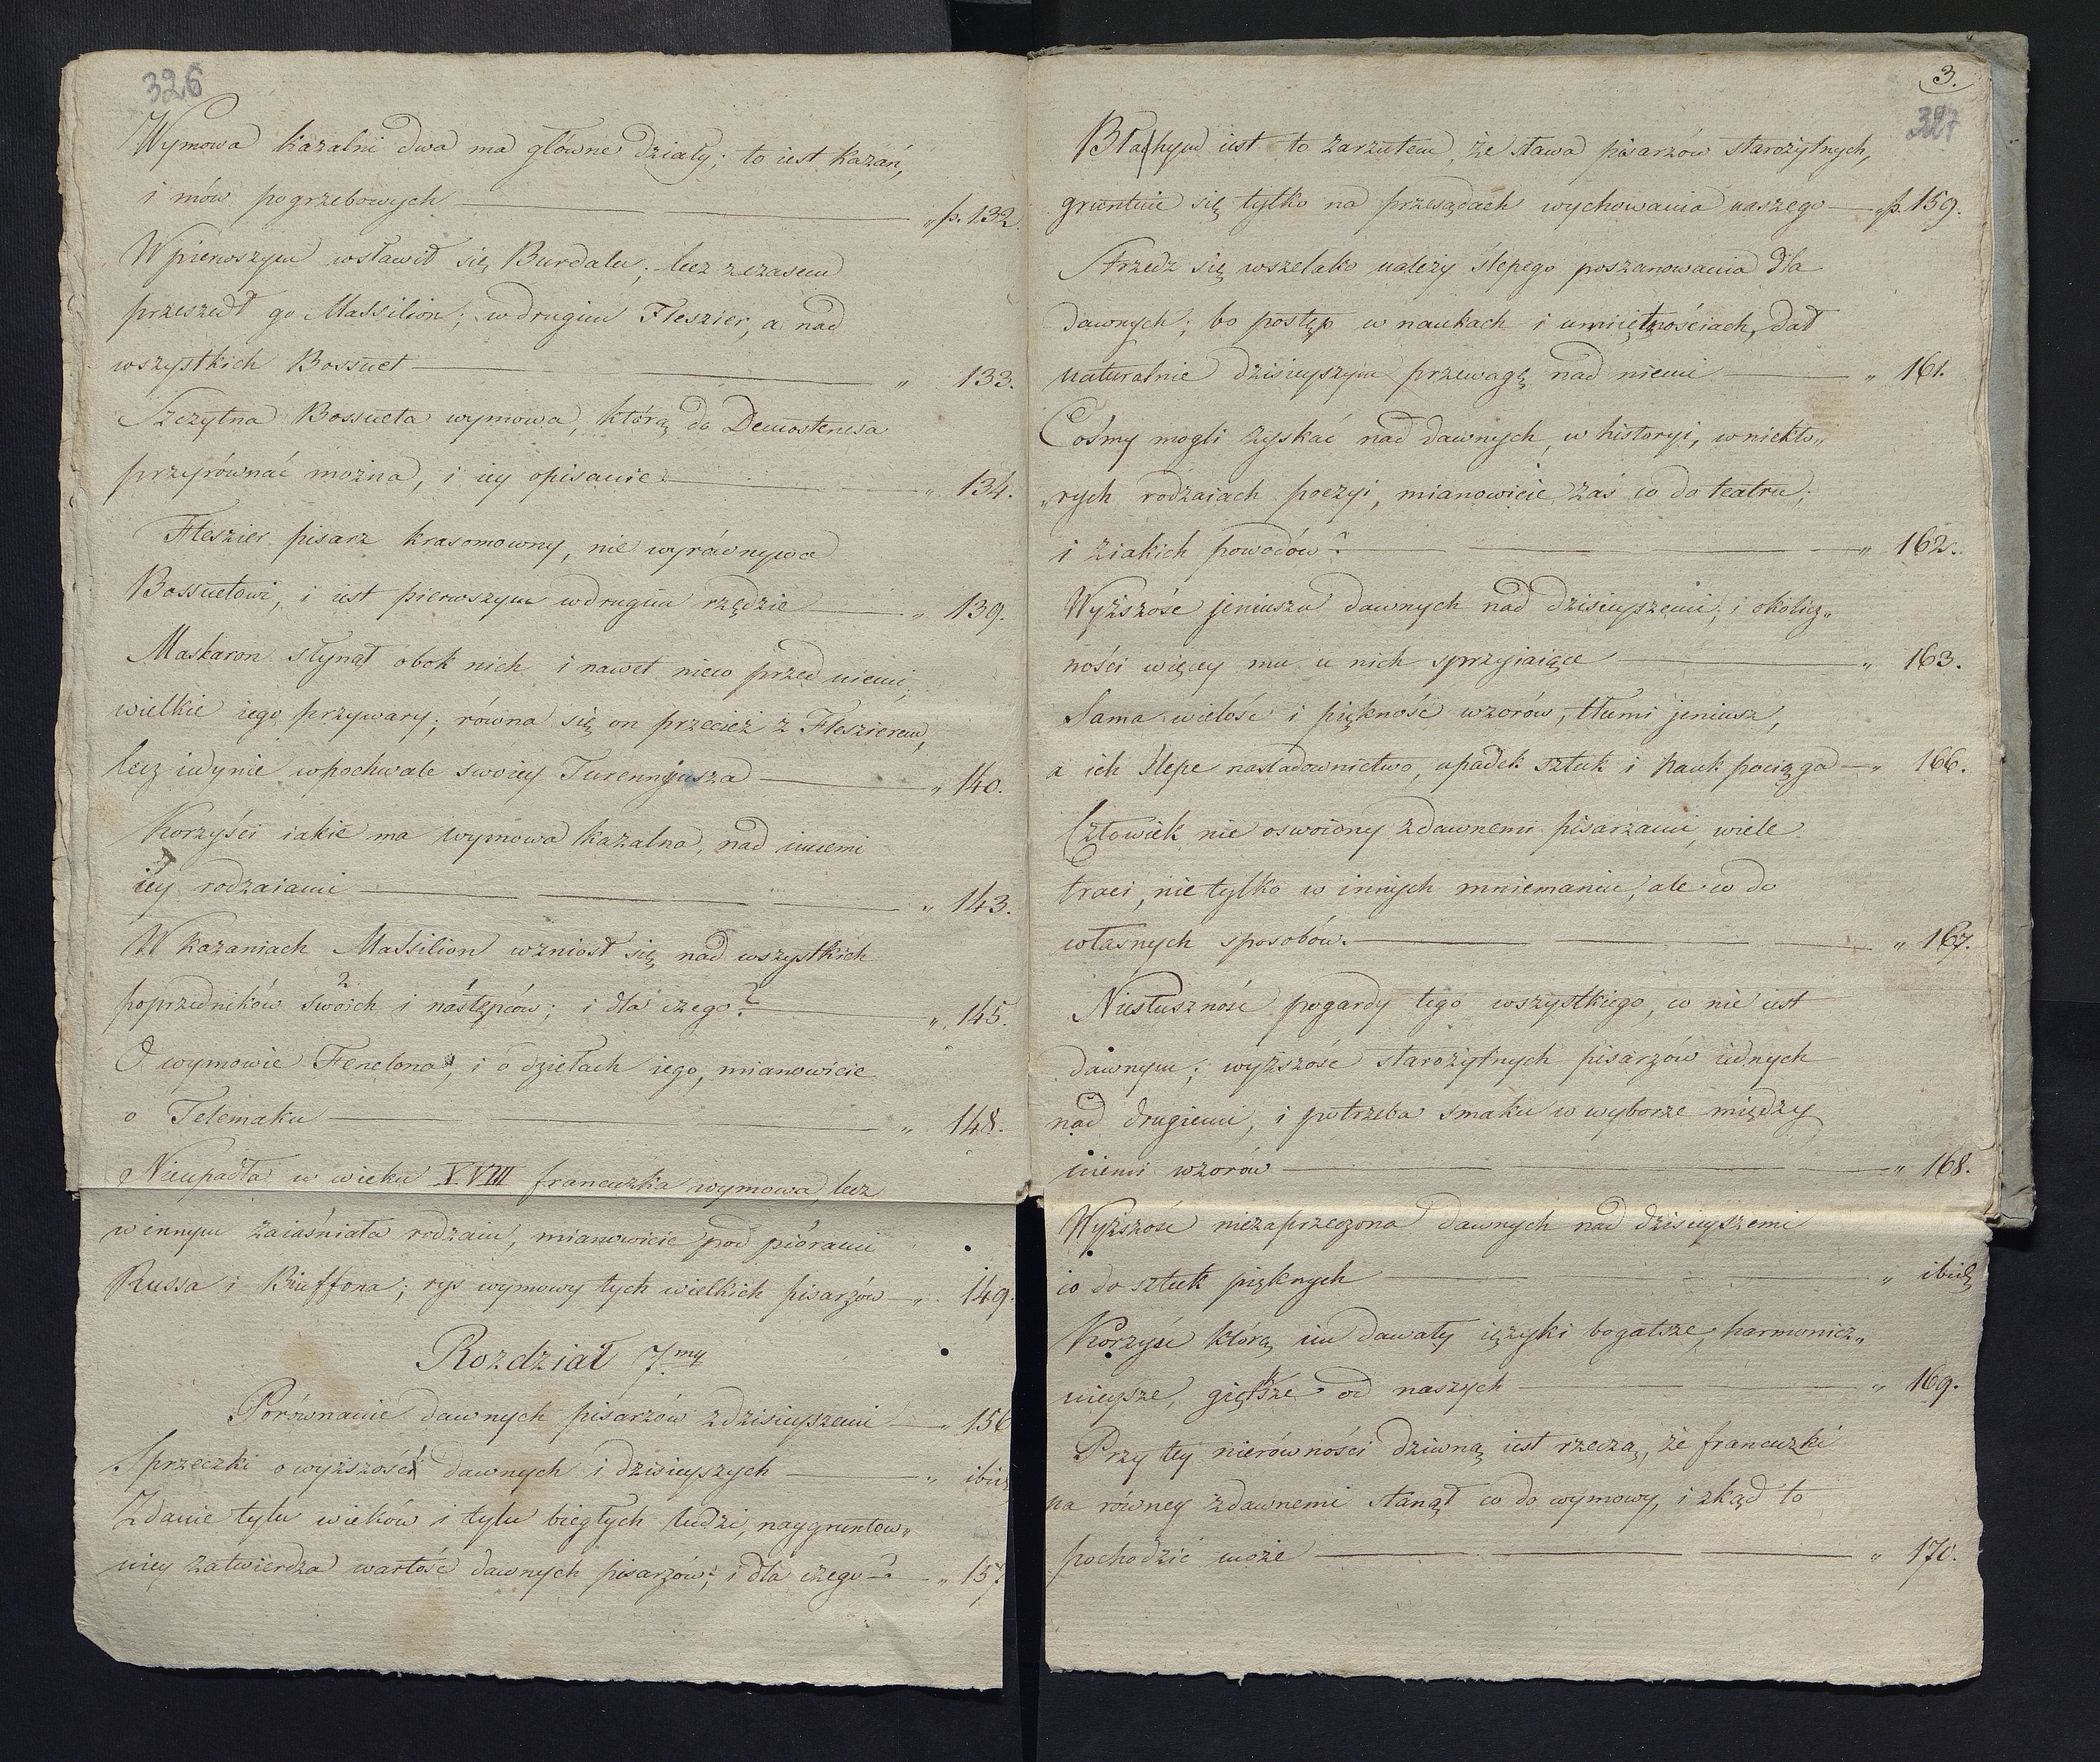 326
Wymowa kazalni dwa ma główne działy; to iest kazań,
i mów pogrzebowych „ p. 132.
W pierwszym wsławił się Burdalu; lecz zczasem
przeszedł go Massilion; w drugim Fleszier, a nad
wszystkich Bossuet „ 133.
Szczytna Bossueta wymowa, którą do Demostenesa
przyrównać można, i iey opisanie „ 134.
Fleszier pisarz krasomowny, nie wyrównywa
Bossuetowi, i iest pierwszym wdrugim rzędzie „ 139.
Maskaron słynął obok nich i nawet nieco przed niemi;
wielkie iego przywary; równa się on przecież z Fleszierem,
lecz iedynie wpochwale swoiey Turenniusza „ 140.
Korzyści iakie ma wymowa kazalna, nad innemi
iey rodzaiami „ 143.
W kazaniach Massilion wzniosł się nad wszystkich
poprzedników swoich 2 i następców 1; i dla czego? „ 145.
O wymowie Fenelona, i o dziełach iego, mianowicie
o Telemaku „ 148.
Nieupadła w wieku XVIII francuzka wymowa, lecz
w innym zaiaśniała rodzaiu, mianowicie pod piórami
Russa i Biuffona; rys wymowy tych wielkich pisarzów „ 149.
Rozdział 7.my
Porównanie dawnych pisarzów zdzisieyszemi „ 156
Sprzeczki o wyższość dawnych i dzisieyszych „ ibid
Zdanie tylu wieków i tylu biegłych ludzi, naygruntow„
niey zatwierdza wartość dawnych pisarzów; i dla czego? „ 157
3.
327
Błachym iest to zarzutem, że sława pisarzów starożytnych,
gruntuie się tylko na przesądach wychowania naszego „ p. 159.
Strzedz się wszelako należy ślepego poszanowania dla
dawnych; bo postęp w naukach i umieiętnościach, dał
naturalnie dzisieyszym przewagę nad niemi „ 161.
Cośmy mogli zyskać nad dawnych, w historyi, wniektó„
„rych rodzaiach poezyi, mianowicie zaś co do teatru;
i ziakich powodów? „ 162.
Wyższość jeniuszu dawnych nad dzisieyszemi; i okolicz„
ności więcey mu u nich sprzyiaiące „ 163.
Sama wielość i piękność wzorów, tłumi jeniusz,
a ich ślepe naśladownictwo, upadek sztuk i nauk pociąga „ 166.
Człowiek nie oswoiony zdawnemi pisarzami, wiele
traci, nie tylko w innych mniemaniu, ale co do
własnych sposobów. „ 167.
Niesłuszność pogardy tego wszystkiego, co nie iest
dawnym; wyższość starożytnych pisarzów iednych
nad drugiemi, i potrzeba smaku w wyborze między
niemi wzorów „ 168.
Wyższość niezaprzeczona dawnych nad dzisieyszemi
co do sztuk pięknych „ ibid
Korzyść którą im dawały ięzyki bogatsze, harmonicz„
nieysze, giętsze od naszych „ 169.
Przy tey nierówności dziwną iest rzeczą, że francuzki
na równey zdawnemi stanął co do wymowy, i zkąd to
pochodzić może „ 170.